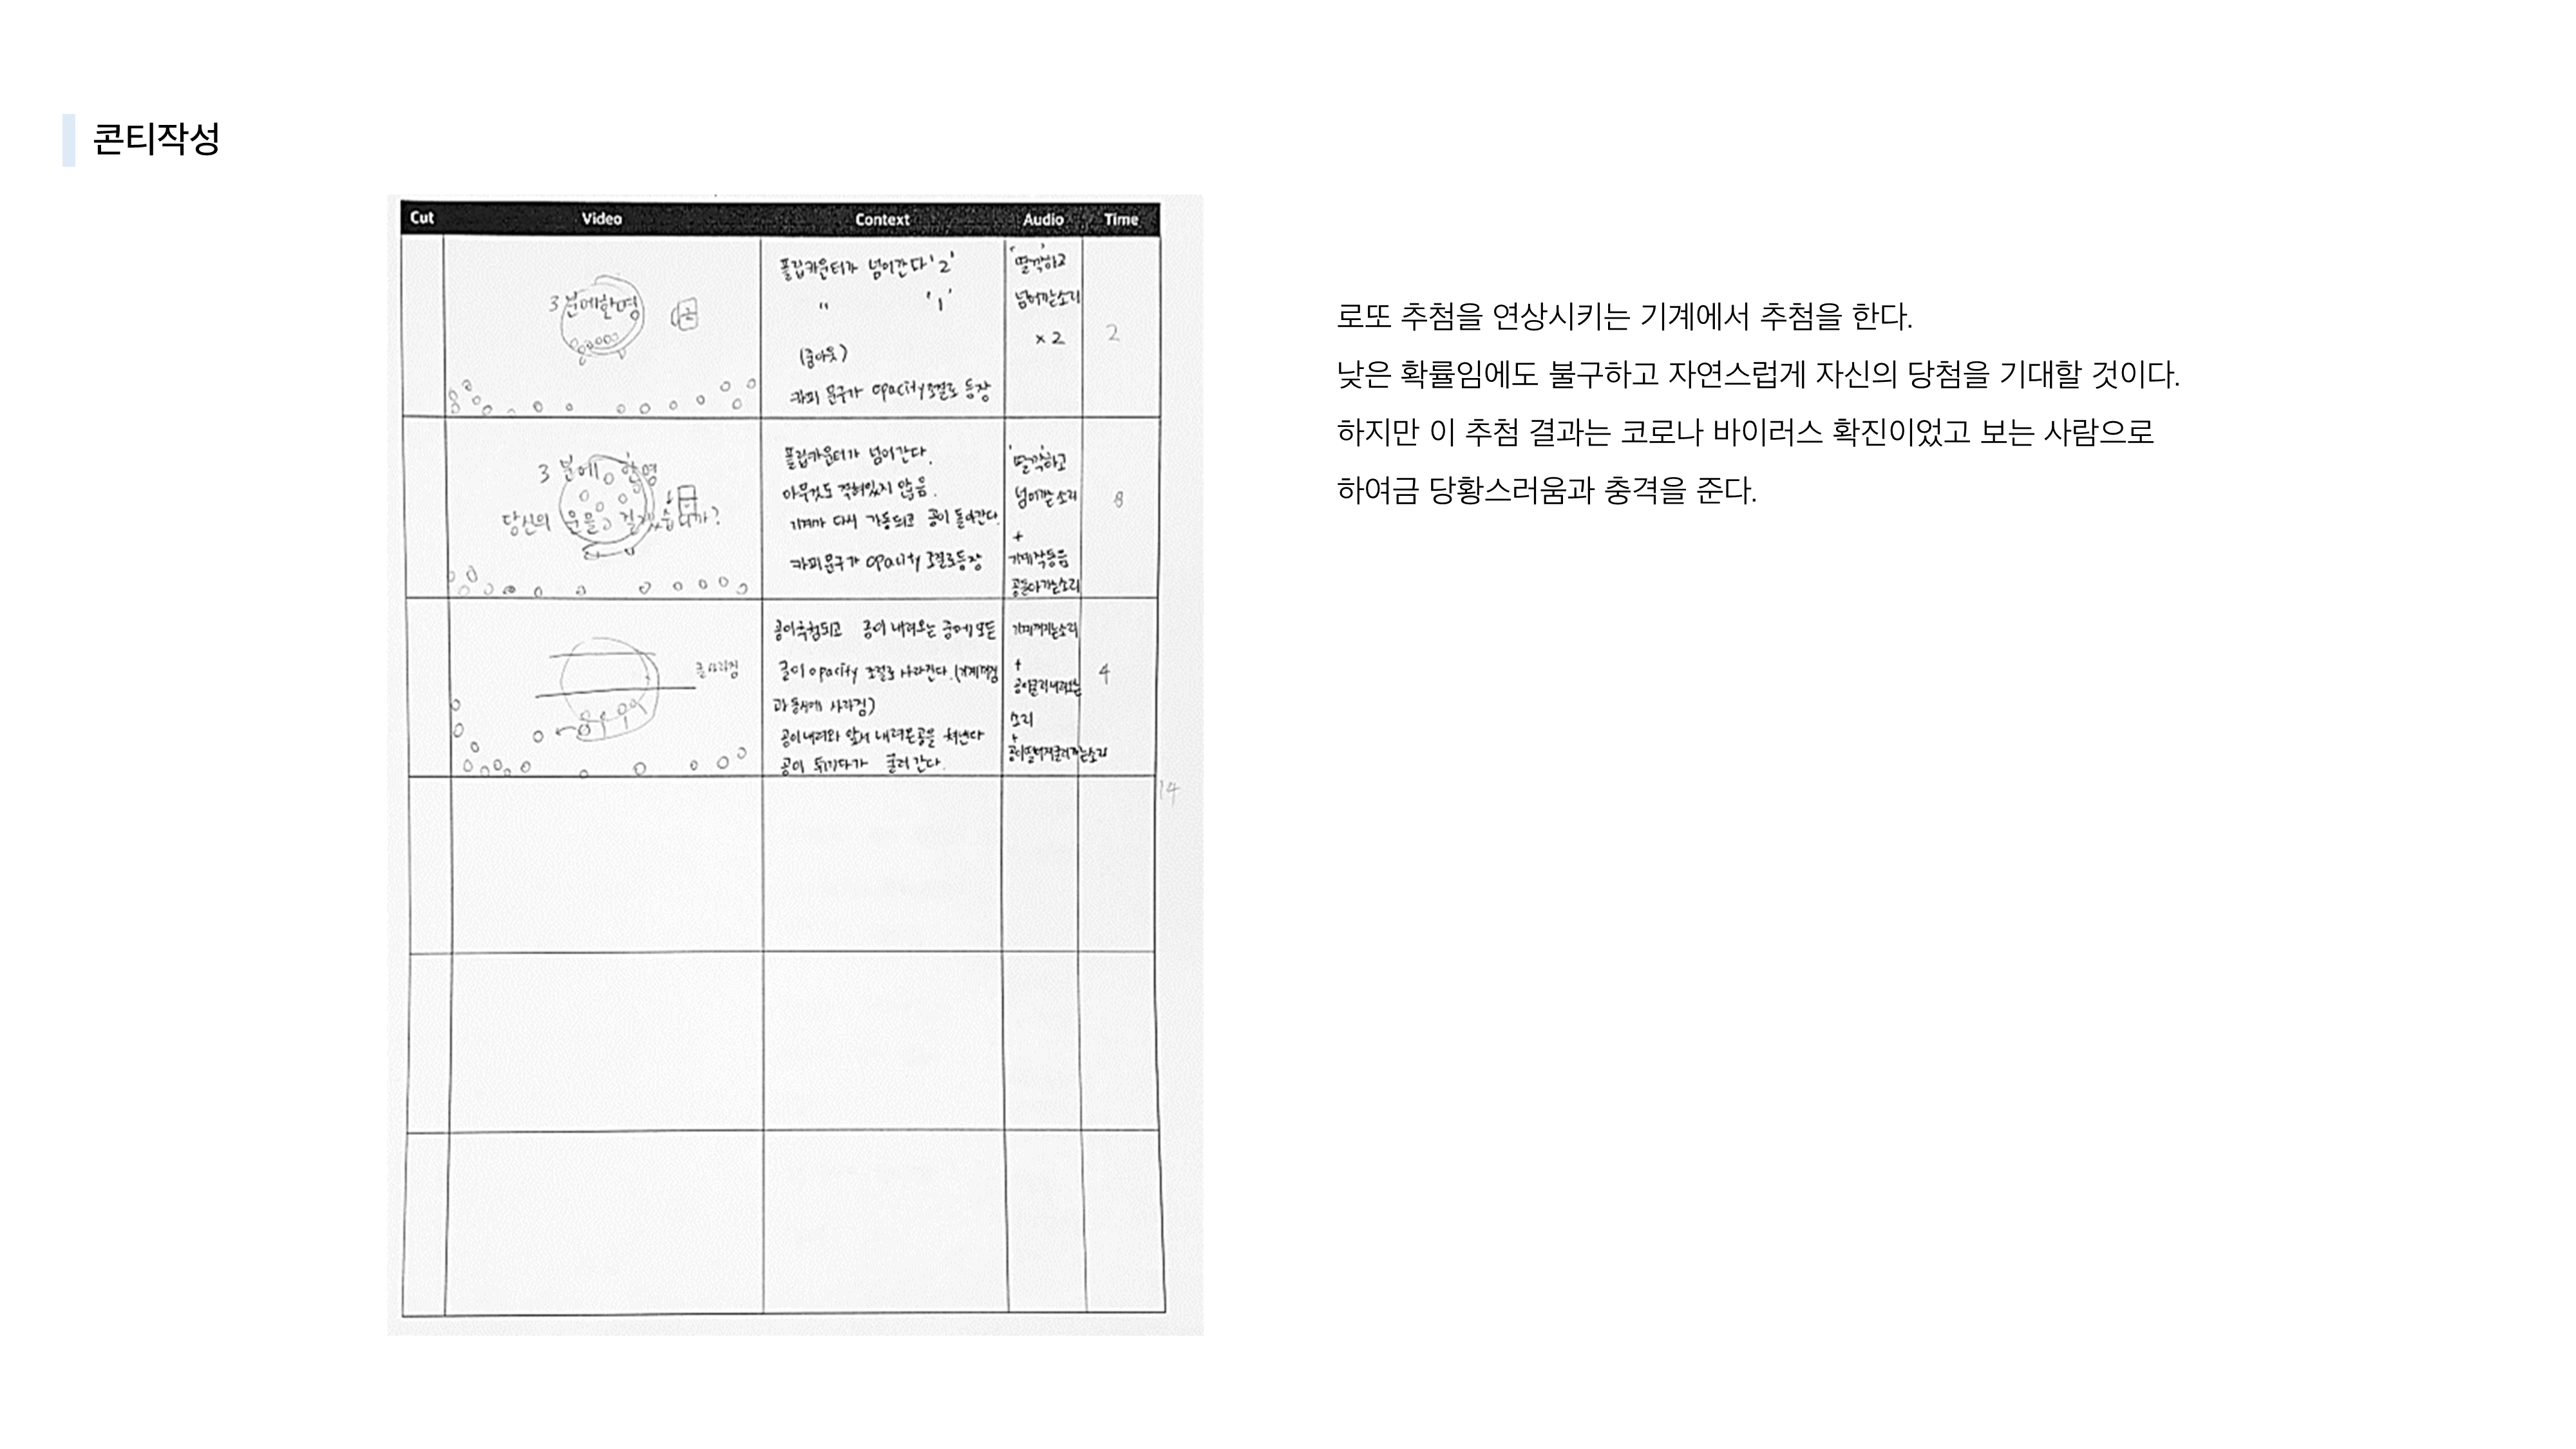 콘티작성
Cut Video Context Audio Time
3분에한명
플립카운터가 넘어간다 '2'
" '1'
(줌아웃)
카피 문구가 opacity 조절로 등장
'딸깍'하고
넘어가는소리
x 2
2
3분에 한명
당신의 운을 믿겠습니까?
플립카운터가 넘어간다.
아무것도 적혀있지 않음.
기계가 다시 가동되고 공이 돌아간다.
카피문구가 opacity 조절로등장
'딸깍'하고
넘어가는 소리
+
기계작동음
공돌아가는소리
8
글사라짐
공이추첨되고 공이 내려오는 중에 모든
글이 opacity 조절로 사라진다. (기계꺼짐
과 동시에 사라짐)
공이내려와 앞서 내려온공을 쳐낸다
공이 튀기다가 굴러 간다.
기계꺼지는소리
+
공이굴러내려오는
소리
+
공이떨어져굴러가는소리
4
14
로또 추첨을 연상시키는 기계에서 추첨을 한다.
낮은 확률임에도 불구하고 자연스럽게 자신의 당첨을 기대할 것이다.
하지만 이 추첨 결과는 코로나 바이러스 확진이었고 보는 사람으로
하여금 당황스러움과 충격을 준다.